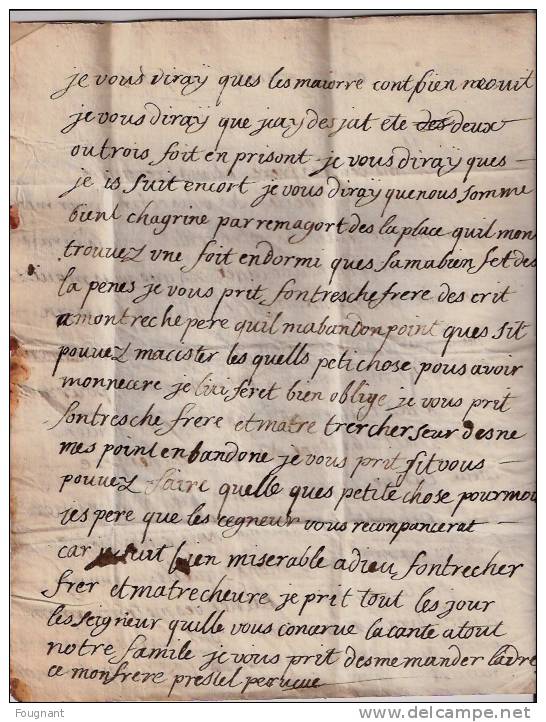 je vous diraÿ ques les maiorre cont bien
je vous diraÿ que jaÿ des jat ete des deux
ou trois foit en prisont je vous diraÿ ques
je is suit encort je vous diraÿ que nous somme
bienl chagrine par remagort des la place quil mon
trouvez vne foit endormi ques sama bien fet des
la penes je vous prit fontresche frere des crit
a montreche pere quil mabandon point ques sit
pouvez macister les quells peti chose pous avoir
monnecere je lui seret bien oblige je vous prit
fontresche frere et matre trercher seur des ne
mes point enbandone je vous prit sit vous
pouvez faire quelle ques petite chose pour mou
jes pere que les cegneur vous reconpancerat
car je suit bien miserable adieu fontrecher
frer et matrecheure je prit tout les jour
les seigneur quille vous concerue la cante a tout
notre famile je vous prit des me mander
ce mon frere
delcampe.net
Fougnant